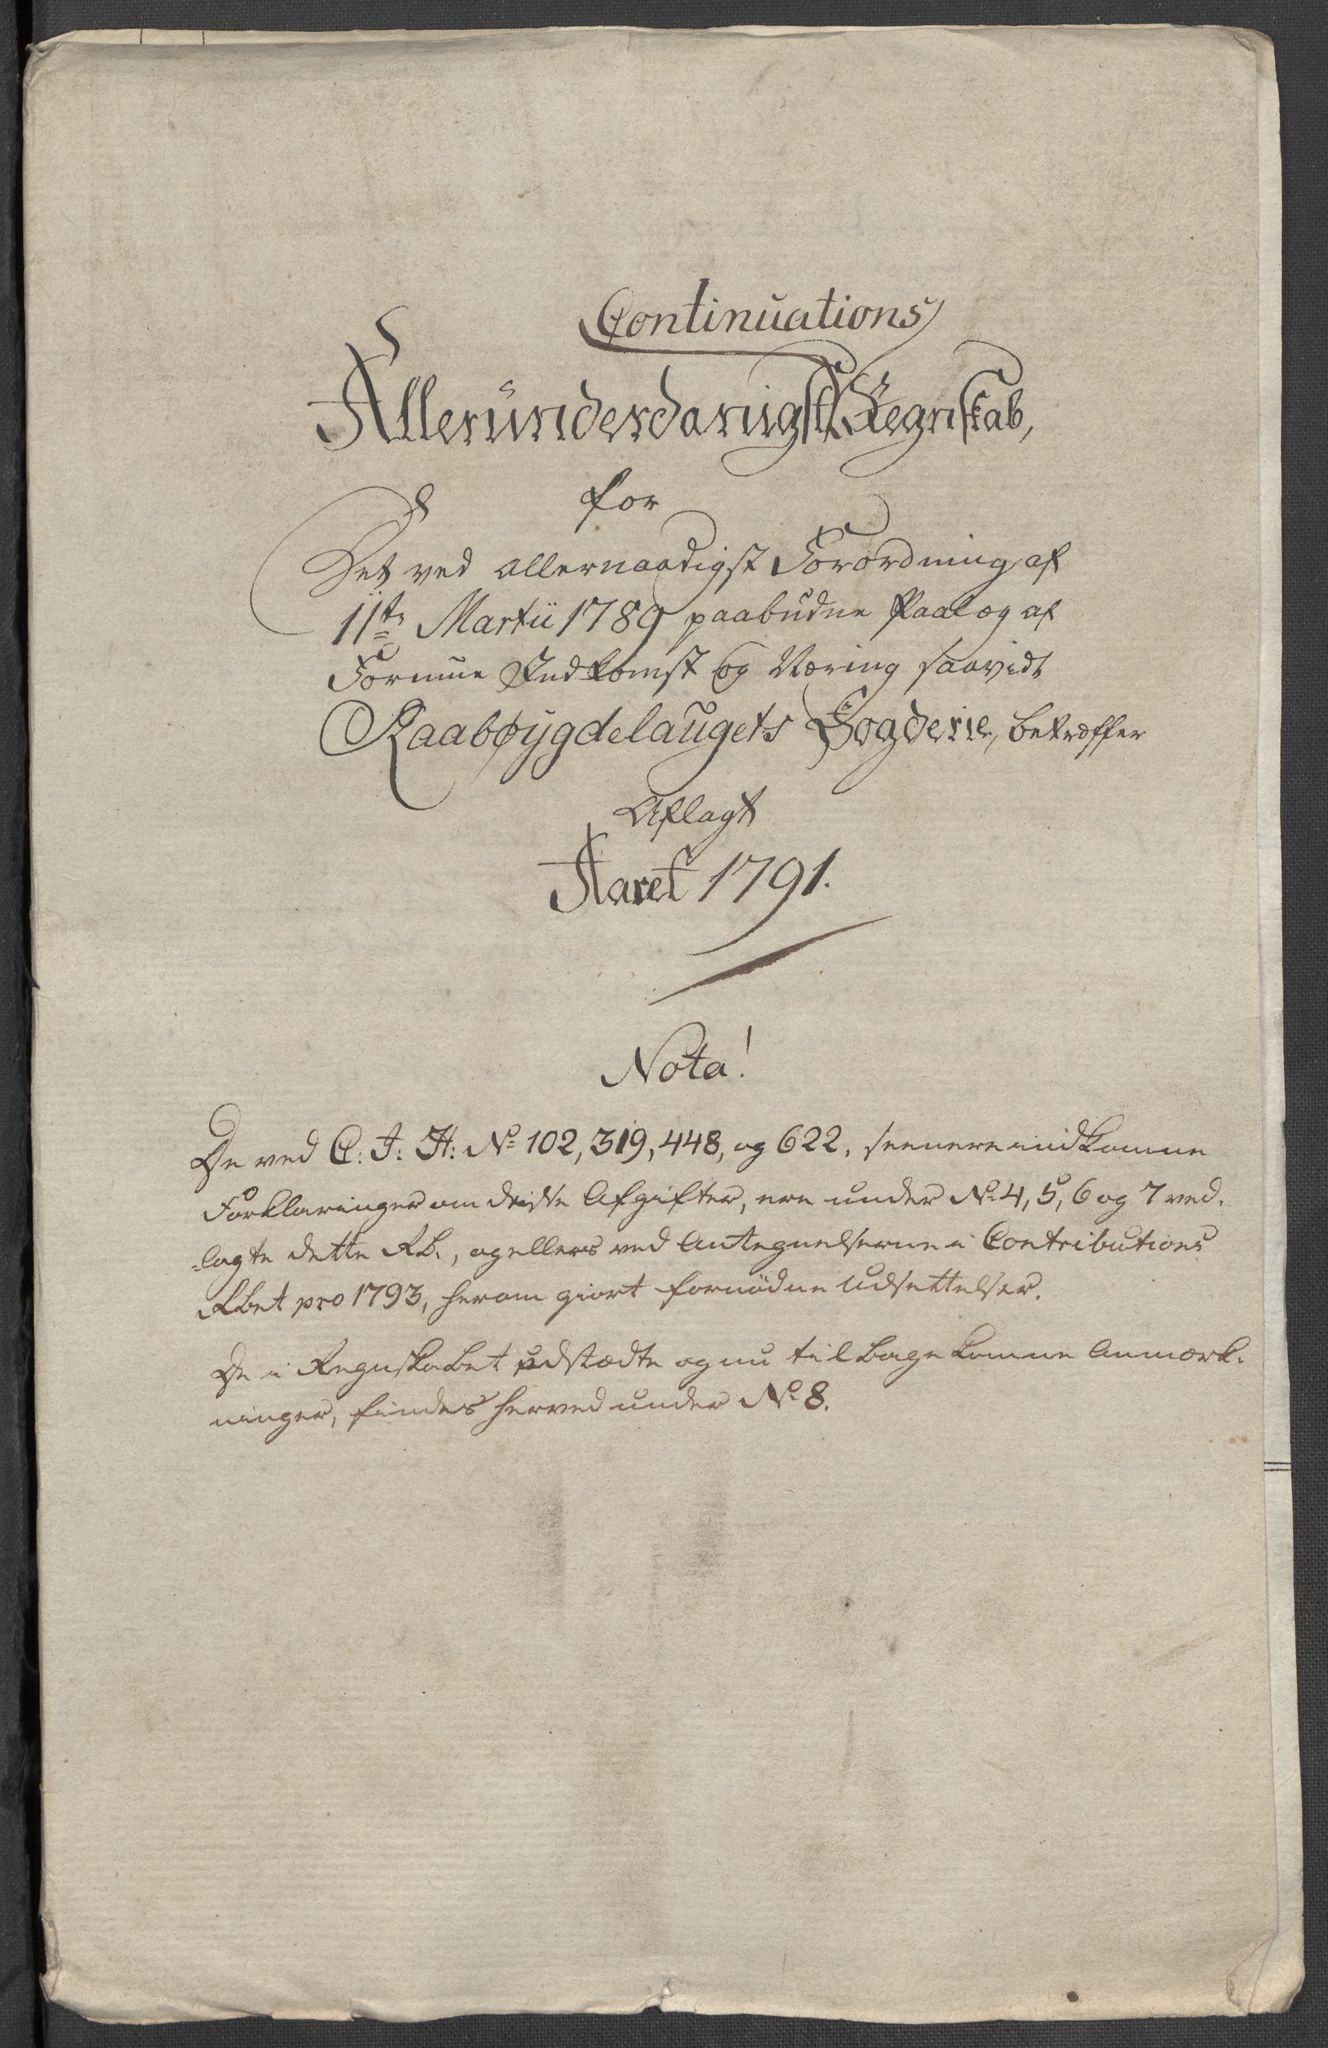 Continuations
Allerunderdanigst Regnskab,
for
Det ved allernaadigst Forordning af
11te Martii 1789 paabudne Paalæg af
Formue Indkomst og Næring saavidt
Raabøygdelaugets Fogderie, betræffer
Aflagt
Aaret 1791.
Nota!
De ved C: I: H: No 102, 319, 448, og 622, seenere indkomne
Forklaringer om disse Afgifter, ere under No 4, 5, 6 og 7 ved-
-lagte dette RB., og ellers ved Antegnelserne i Contributions
RBet pro 1793, herom giort fornødne Udsettelser.
De i Regnskabet udstædte og nu tilbagekomne Anmærk-
ninger, findes herved under No 8.